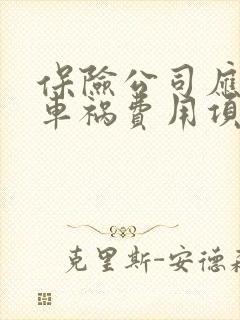 保險公司應
車禍費用項
克里斯-安德森